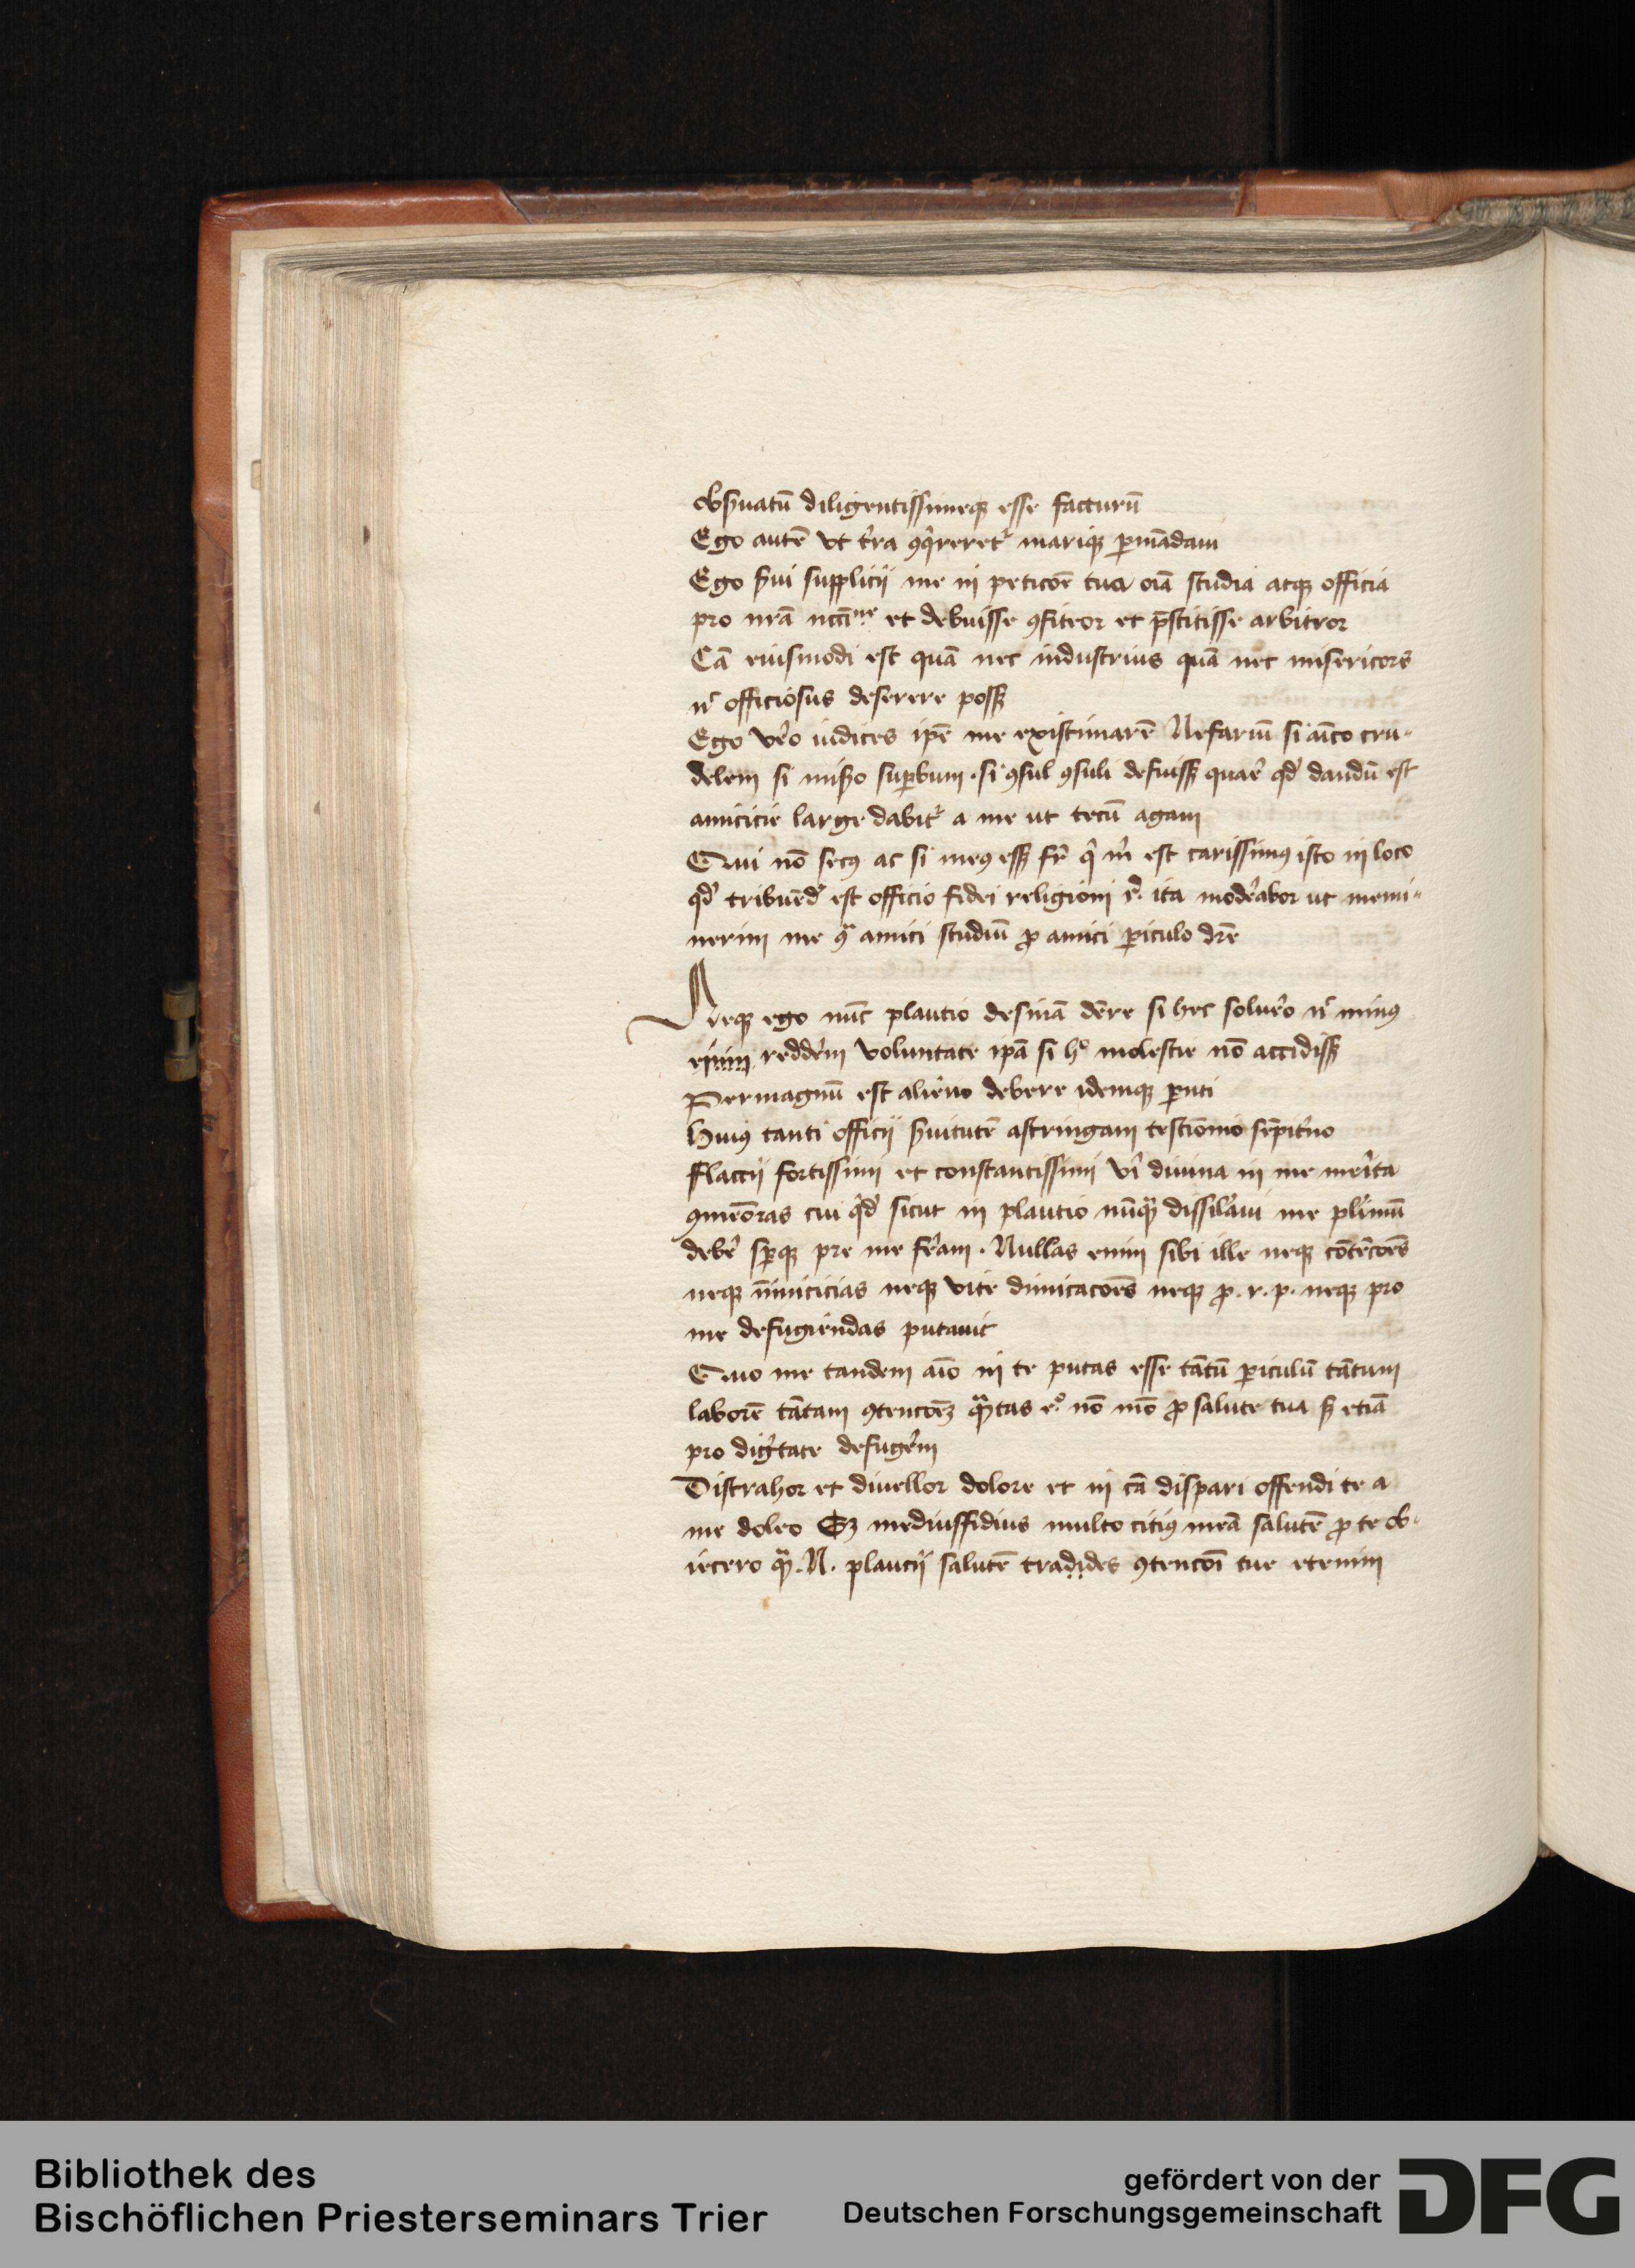 obſuatū diligentiſſimeqȝ eſſe facturū
Ego autē vt t'ra ꝯq̇reret᷑ mariqȝ ꝑmādaui
Ego ſ̄ui ſupplicij me in peticoē tua oīa ſtudia atqȝ officia
pro nr̄a et debuiſſe ꝯfiteor et p̄ſtitiſſe arbitror
Cā eiuſmodi eſt quā nec induſtrius quā nec miſericors
nͨ officioſus deſerere poſſȝ
Ego v'o iudices ip̄e me exiſtimarē Nefariū ſi aīco cru-
delem ſi miſ'o ſuꝑbum . ſi ꝯſul ꝯſuli defuiſſȝ quar̄ qd' dandū eſt
amicicie large dabit᷑ a me ut tecū agam
Qui nō ſecꝰ ac ſi meꝰ eſſȝ fr̄ q̇ m̄ eſt cariſſimꝰ iſto in loco
qd' tribuēd' eſt officio fidei religioni ita mod'abor ut memi-
nerim me ꝯͣ amici ſtudiū ꝓ amici ꝑiculo dr̄e
Neqȝ ego nūc plautio deſinā dēre ſi hec ſolu'o nͨ minꝰ
enim redd'em voluntate ip̄a ſi hͦ moleſtie nō accidiſſȝ
Permagnū eſt alieno debere idemqȝ
Huiꝰ tanti officij ſ̄uitutē aſtringam teſtīomio ſēpit'no
Flaccij fortiſſimi et conſtantiſſimi vi' diuina in me m'ita
ꝯmeōras cui qd' ſicut in plautio nūqͣȝ diſſil'aui me pl'imū
deb'e ſꝑqȝ pre me f'am . Nullas enim ſibi ille neqȝ cōtēcoēs
neqȝ īimicicias neqȝ vite dimicacoēs neqȝ ꝓ . r . p . neqȝ pro
me defugiendas putauit
Quo me tandem aīo in te putas eſſe tātū ꝑiculū tātum
laborē tātam ꝯtencoēȝ nō mō ꝓ ſalute tua ſȝ etiā
pro dig'tate defug'em
Diſtrahor et diuellor dolore et in cā diſpari offendi te a
me doleo Sȝ mediuſfidius multo citiꝰ meā ſalutē ꝓ te ob-
iecero qͣȝ . N . plaucij ſalutē tradides ꝯtencoī tue etenim
Bibliothek des
Bischöflichen Priesterseminars Trier
gefördert von der
Deutschen Forschungsgemeinschaft
DFG